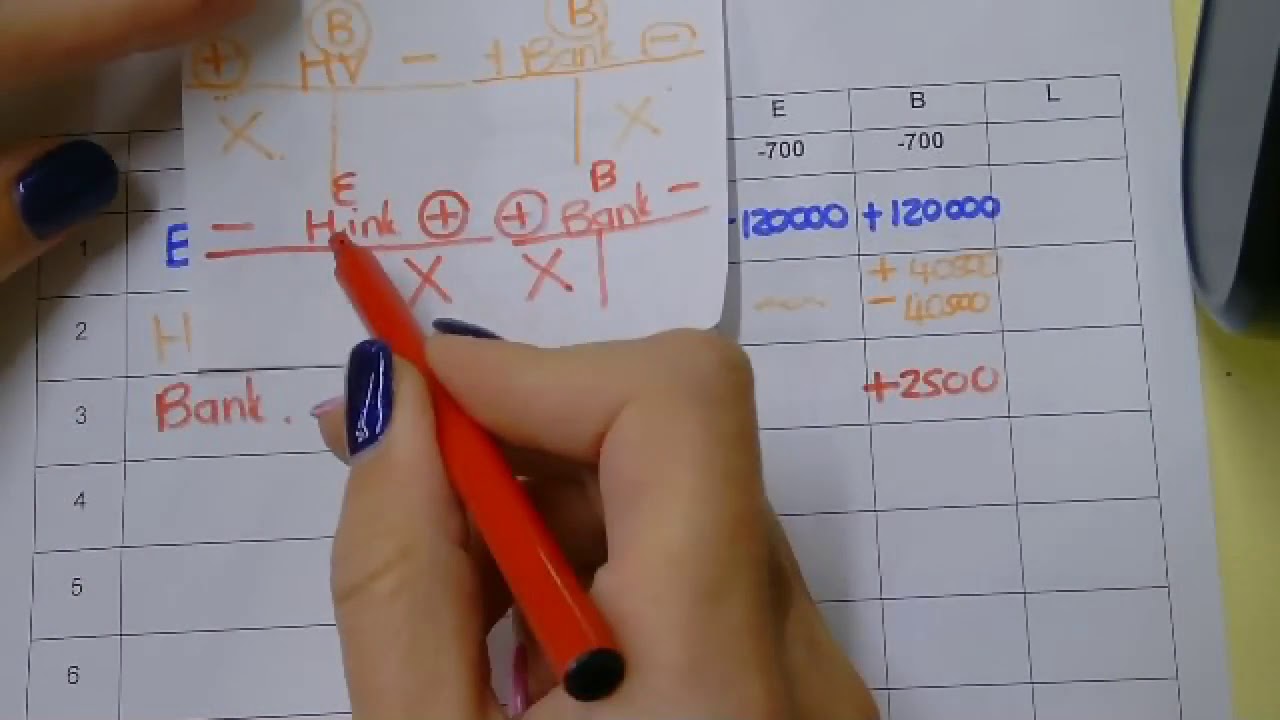 B B
+ HV - + Bank -
X X
E B
- Hink + + Bank -
X X
E B L
-700 -700
1 E -120000 +120000
+ 40500
2 H - 40500
3 Bank. +2500
4
5
6